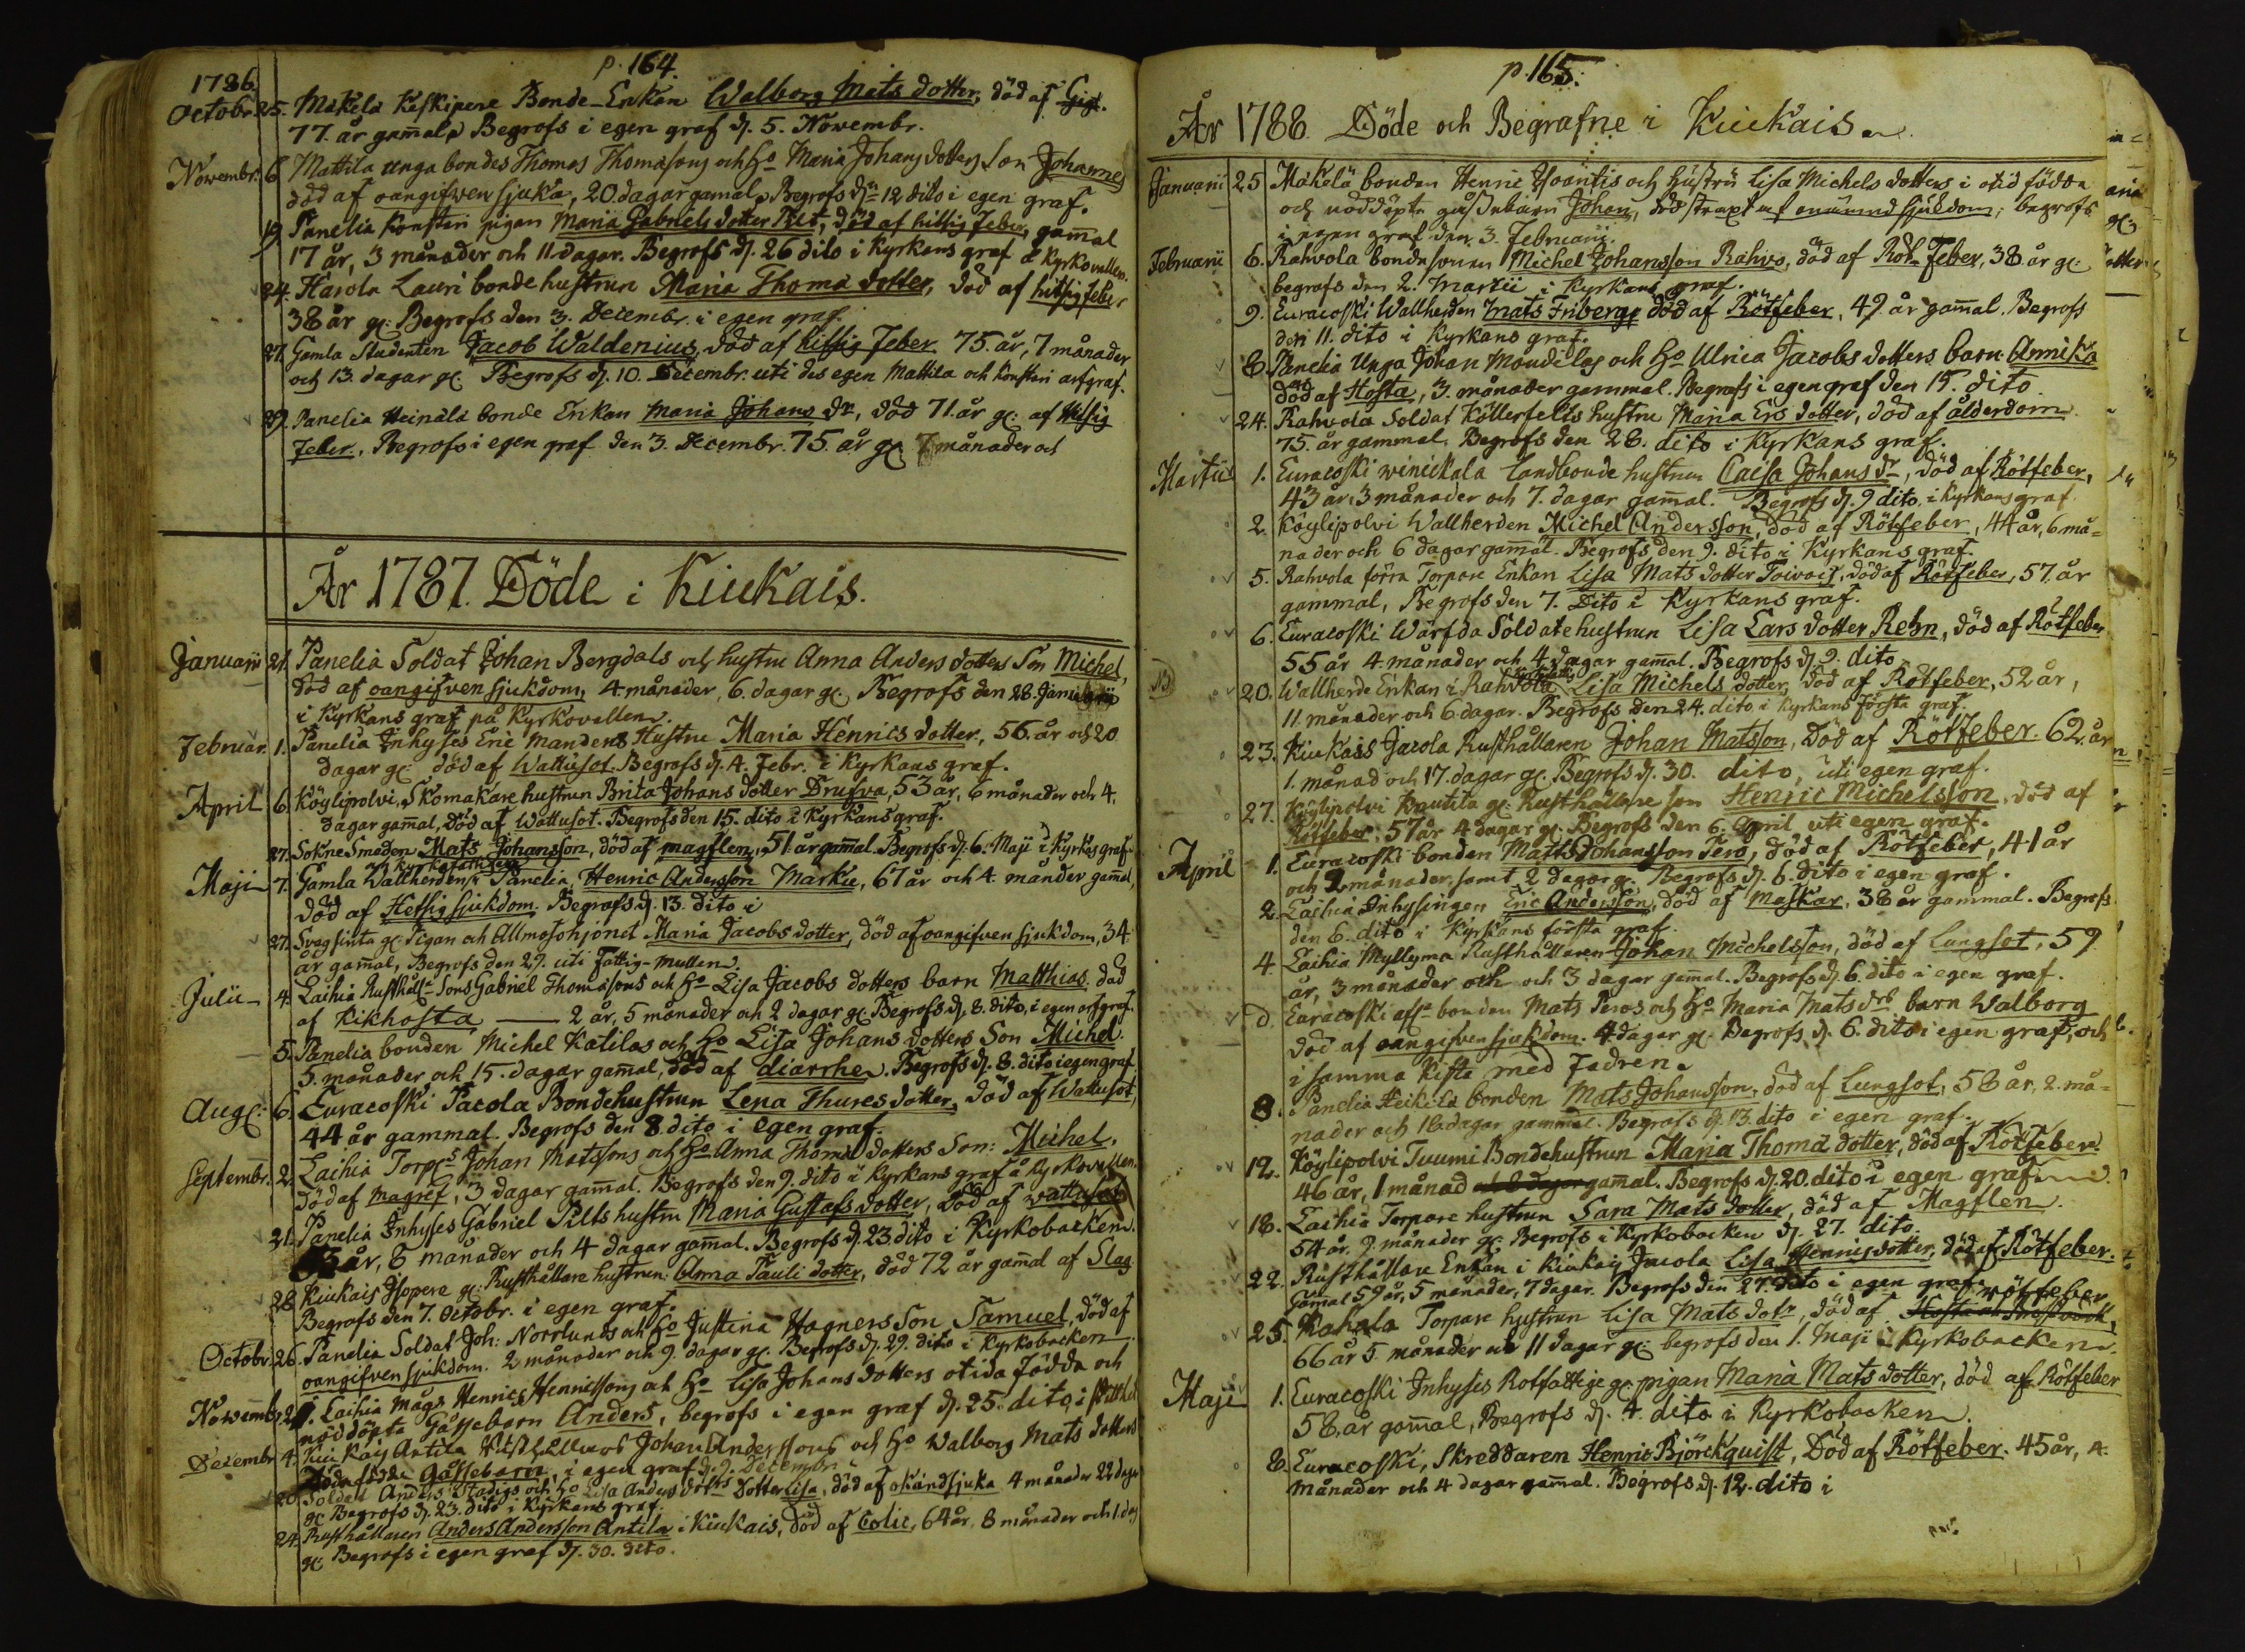 p. 164.
1786.
Octobr. 25. Mäkelä Keskipere Bonde-Enkan Walborg Mats dotter, död af Gigt.
77. år gamal, Begrofs i egen graf d. 5. Novembr.
Novembr. 6 Mattila unga bondes Thomas Thomasons och Ho Maria Johans dotters Son Johannes
död af oangifwen sjuka, 20. dagar gamal, Begrofs dn 12 dito i egen graf.
19 Panelia Konsteri pigan Maria Gabriels dotter Pilt, död af hitsig Feber, gamal
17 år, 3 månader och 11 dagar. Begrofs d. 26 dito i Kyrkans graf å Kyrkovallen.
24. Harola Lauri bonde hustrun Maria Thomæ dotter, död af hitsig feber
38 år gl: Begrofs den 3. Decembr. i egen graf.
27. Gamla Studenten Jacob Waldenius, död af hitsig Feber 75. år, 7 månader
och 13. dagar gl: Begrofs d. 10. Decembr. uti des egen Mattila och Konsteri arfgraf.
29. Panelia Heinälä bonde Enkan Maria Johans dr, död 71. år gl: af Hitsig
Feber. Begrofs i egen graf den 3. Decembr. 75. år gl: 7 månader och
År 1787. Döde i Kiukais.
Januarii 21. Panelia Soldat Johan Bergdals och hustru Anna Anders dotters Son Michel,
död af oangifven sjukdom, 4. månader, 6. dagar gl: Begrofs den 28. Januarii
i Kyrkans graf på Kyrkovallen.
Februar. 1. Panelia Inhyses Eric Manders Hustru Maria Henrics dotter, 56. år och 20
dagar gl: död af Wattusot. Begrofs d. 4. Febr. i Kyrkans graf.
April 6. Köylipolvi, Skomakare hustrun Brita Johans dotter Drufva, 53 år, 6 månader och 4.
dagar gamal, död af Wattusot. Begrofs den 15. dito i Kyrkans graf.
27. Sokne Smeden Mats Johansson, död af magflen, 51. år gamal. Begrofs d. 6. Maji i Kyrkes graf
Maji 7. Gamla Wallherden i Panelia, Henric Andersson Markū, 67 år och 4. månder gamal,
död af Hetsig sjukdom. Begrofs d. 13. dito i
27. Svagsinta gl: Pigan och Allmosohjonet Maria Jacobs dotter, död af oangifven sjukdom, 34.
år gamal, Begrofs den 29. uti Fattig-mullen.
Julii 4. Laihia Rusthålle Sons Gabriel Thomasons och Ho Lisa Jacobs dotters barn Matthias. död
af Kikhosta 2 år, 5 månader och 2 dagar gl: Begrofs d. 8. dito, i egen arfgraf.
5. Panelia bonden Michel Katilas och Ho Lisa Johans dotters Son Michel.
5. månader och 15. dagar gamal, död af diarrhe. Begrofs d. 8. dito i egen graf.
Aug: 6. Euracoski Pacola Bondehustrun Lena Thures dotter, död af Wattusot,
44 år gammal. Begrofs den 8. dito i egen graf.
Septembr. 2. Laihia Torps Johan Matssons och Ho Anna Thomæ dotters Son: Michel.
död af magref, 3 dagar gamal. Begrofs den 9. dito i Kyrkans graf å Kyrkovallen.
21. Panelia Inhyses Gabriel Pilts hustru Maria Gustafs dotter, död af wattusot
år, 8 månader och 4 dagar gamal. Begrofs d. 23. dito i Kyrkobacken.
28. Kiukais Isopere gl: Rusthållare hustrun: Anna Pauli dotter, död 72 år gamal af Slag.
Begrofs den 7. Octobr. i egen graf.
Octobr. 26. Panelia Soldat Joh: Norrlunds och Ho Justina Hagners Son Samuel, död af
oangifven sjukdom. 2 månader och 9. dagar gl: Begrofs d. 29. dito i Kyrkobacken
Novembr. 21. Laihia Mågs Henrics Henricssons och Ho Lisa Johans dotters otida födda och
nöddöpta Gåssebarn Anders, begrofs i egen graf d. 25. dito, i
Decembr 4. Kiukais Antila Johan Anderssons och Ho Walborg Mats dotters
Dödfödde Gåssebarn, i egen graf d. 9. Decembr.
20. Soldat Anders Stadigs och Ho Lisa Anders dotters Dotter Lisa, död af okändsjuka 4 månader 22 dagar
gl: Begrofs d. 23. dito i Kyrkans graf.
24. Rusthållaren Anders Andersson Antila i Kiukais, död af Colic, 64 år, 8 månader och 1. dag
gl: Begrofs i egen graf d. 30. dito.
p. 165.
År 1788. Döde och Begrafne i Kiukais.
Januarii 25 Mäkelä bonden Henric Isoantis och hustru Lisa Michels dotters i otid födda
och nöddöpta gåssebarn Johan, död straxt af onämnd sjukdom; begrofs
i egen graf den 3. Februarii.
Februarii 6. Rahvola bondesonen Michel Johansson Rahvo, död af Röt-Feber, 38 år gl:
begrofs den 2. Martii i Kyrkans graf.
9. Euracoski Wallherden Mats Friberg, död af Rötfeber, 49. år gamal. Begrofs
den 11. dito i Kyrkans graf.
8. Panelia Unga Johan Moudilas och Ho Ulrica Jacobs dotters barn Annika
död af Hosta, 3. månader gammal. Begrofs i egen graf den 15. dito
24. Rahvola Soldat Köllerfelts hustru Maria Ers dotter, död af ålderdom
75. år gammal. Begrofs den 28. dito i Kyrkans graf.
Martii 1. Euracoski winickala landbonde hustrun Caisa Johans dr, död af Rötfeber,
43 år, 3 månader och 7. dagar gamal. Begrofs d. 9 dito, i Kyrkans graf.
2 Köylipolvi Wallherden Michel Andersson, död af Rötfeber, 44 år, 6 må=
nader och 6 dagar gamal. Begrofs den 9. dito i Kyrkans graf.
5. Rahvola förra Torpare Enkan Lisa Mats dotter Toivois, död af Rötfeber, 57. år
gammal, Begrofs den 7. Dito i Kyrkans graf.
6. Euracoski Wärfda Soldatehustrun Lisa Lars dotter Rehn, död af Rötfeber
55 år 4. månader och 4. dagar gamal. Begrofs d. 9. dito
20. Wallherde Enkan i Rahvola Lisa Michels dotter, död af Rötfeber, 52 år,
11. månader och 6. dagar. Begrofs den 24. dito i Kyrkans första graf.
23. Kiukais Jacola Rusthållaren Johan Matsson, död af Rötfeber. 62. år
1. månad och 17. dagar gl: Begrofs d. 30. dito, uti egen graf.
27. Köylipolvi Knutila gl: Rusthållare son Henric Michelsson, död af
Rötfeber, 57 år 4 dagar gl: Begrofs den 6. April uti egen graf.
April 1. Euracoski bonden Matts Johansson Pero, död af Rötfeber, 41 år
och 2 månader, samt 2 dagar gl: Begrofs d. 6. dito i egen graf.
2. Laihia Inhysingen Eric Andersson, död af Maskar, 38 år gammal. Begrofs
den 6. dito i Kyrkans första graf.
4 Laihia Myllyma Rusthållaren Johan Michelsson, död af Lungsot, 59
år, 3 månader och och 3 dagar gamal. Begrofs d. 6. dito i egen graf.
d. Euracoski afl. bonden Mats Peros och Ho Maria Mats drs barn Walborg
död af oangifven sjukdom. 4 dagar gl: Begrofs d. 6. dito i egen graf, och
i samma Kista med Fadren.
8. Panelia Heikilä bonden Mats Johansson, död af Lungsot, 58 år, 2. må=
nader och 18 dagar gammal. Begrofs d. 13. dito i egen graf.
12. Köylipolvi Tuumi Bondehustrun Maria Thomæ dotter, död af Rötfeber.
46 år, 1 månad och 2 dagar gamal. Begrofs d. 20. dito i egen graf.
18. Laihia Torpare hustrun Sara Mats dotter, död af Magflen.
54 år. 9. månader gl: Begrofs i Kyrkobacken d. 27. dito.
22. Rusthållare Enkan i Kiukais Jacola Lisa Henrics dotter, död af Rötfeber.
Gamal 59 år, 5 månader, 7 dagar. Begrofs den 27. dito i egen graf.
rötfeber
25. Kahala Torpare hustrun Lisa Mats dotr, död af Hosta och
66 år 5. månader och 11 dagar gl: begrofs den 1. Maji i Kyrkobacken.
Maji 1. Euracoski Inhyses Rotfattige gl: pigan Maria Mats dotter, död af Rötfeber
58. år gamal, Begrofs d. 4. dito i Kyrkobacken.
8. Euracoski, Skreddaren Henric Björckquist, Död af Rötfeber. 45 år, 4.
månader och 4 dagar gamal. Begrofs d. 12. dito i